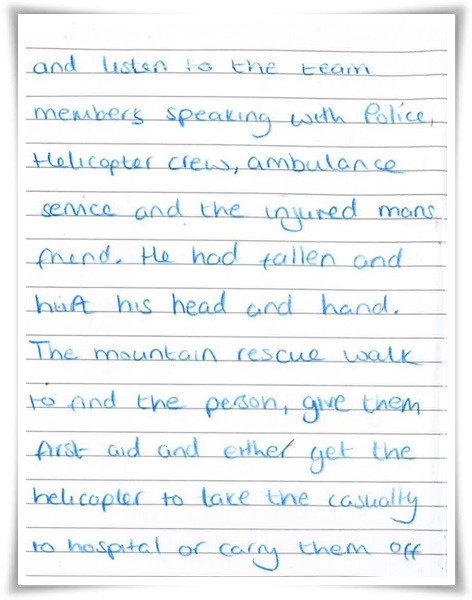 and listen to the team
members speaking with Police,
Helicopter crew, ambulance
service and the injured mans
friend. He had fallen and
hurt his head and hand.
The mountain rescue walk
to find the person, give them
first aid and either get the
helicopter to take the casualty
to hospital or carry them off